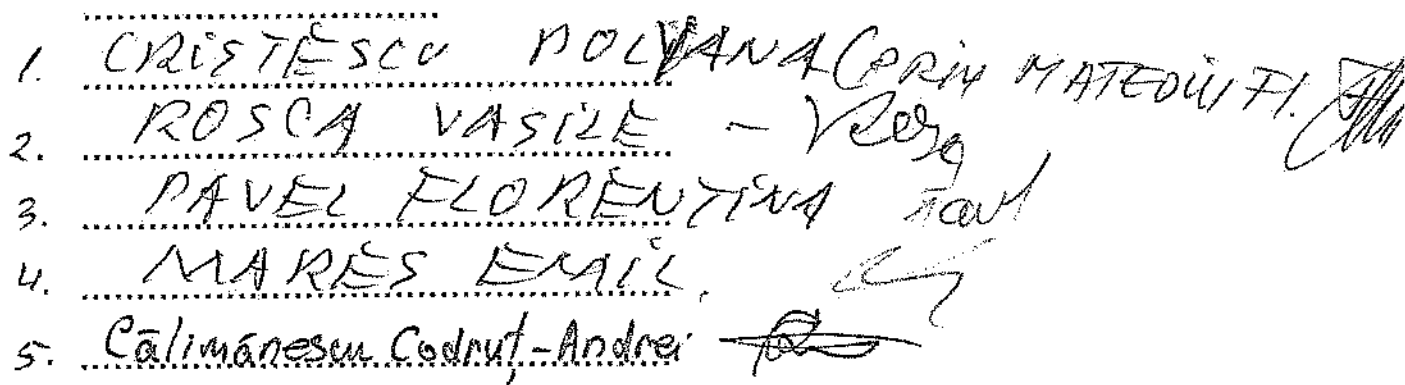 1. CRISTESCU POLIANA (PRIN MATEOIU FL.
2. ROSCA VASILE -
3. PAVEL FLORENTINA Pavel
4. MARES EMIL.
5. Călimănescu Codruț-Andrei